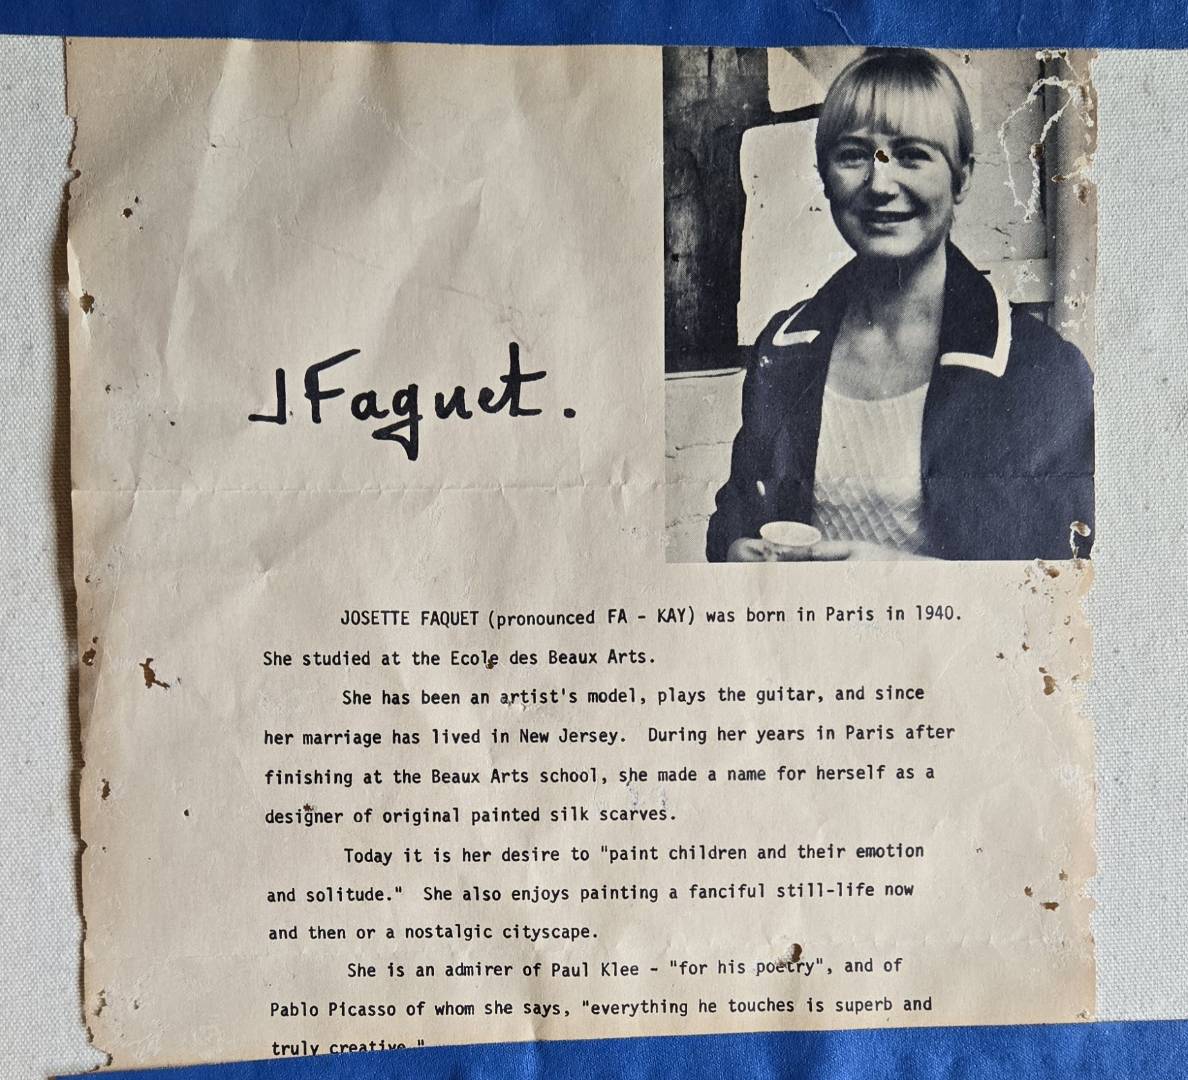 J. Faguet.
JOSETTE FAQUET (pronounced FA - KAY) was born in Paris in 1940.
She studied at the Ecole des Beaux Arts.
She has been an artist's model, plays the guitar, and since
her marriage has lived in New Jersey. During her years in Paris after
finishing at the Beaux Arts school, she made a name for herself as a
designer of original painted silk scarves.
Today it is her desire to "paint children and their emotion
and solitude." She also enjoys painting a fanciful still-life now
and then or a nostalgic cityscape.
She is an admirer of Paul Klee - "for his poetry", and of
Pablo Picasso of whom she says, "everything he touches is superb and
truly creative."